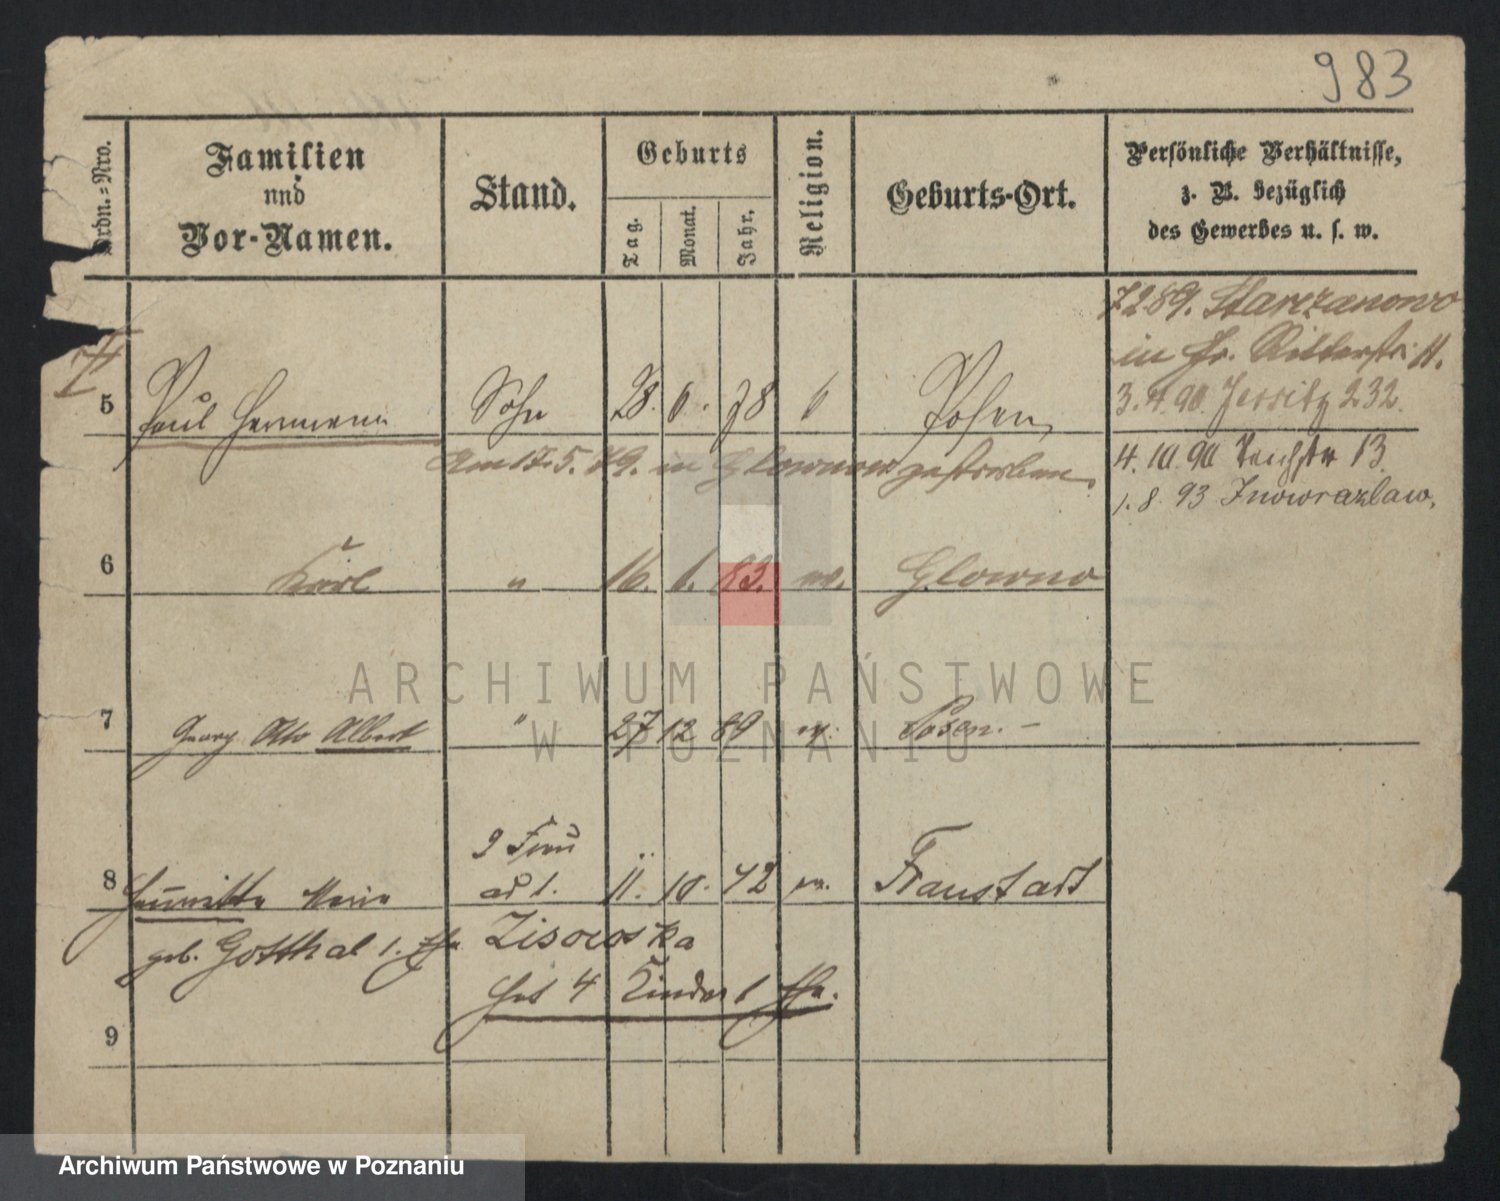 983
Ordn.=Nro.
Familien
und
Vor-Namen.
Stand.
Geburts
Tag.
Monat.
Jahr.
Religion.
Geburts-Ort.
Persönliche Verhältnisse,
z. B. bezüglich
des Gewerbes u. s. w.
7289. Starczanowo
in Gr. Ritterstr. 11.
3.4.90. Jersitz 232.
4. 10. 90 Teichstr 13
1. 8. 93 Inowrazlaw.
5 Paul Hermann Sohn 28. 6. 78 Posen,
Am 17. 5. 79. in Glowno gestorben.
6 Karl " 16. 1. 83. ev. Glowno
7 Georg Otto Albert " 27 12 89 ev. Posen. -
8 Henriette Marie 2 Frau
ad 1. 11. 10. 42 ev. Fraustadt
geb. Gotthal 1. Ehe Zisowska
Hat 4 Kinder 1 Ehe.
9
ARCHIWUM PAŃSTWOWE
W POZNANIU
Archiwum Państwowe w Poznaniu